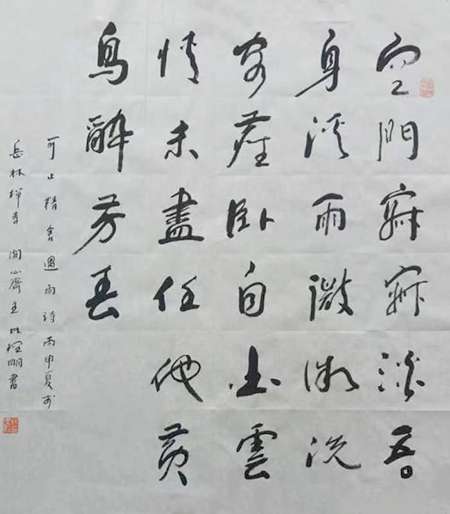 空門寂寂淡吾
身溪雨微微洗
客塵臥向白雲
情未盡任他黃
鳥醉芳春
可止精舍遇雨詩丙申夏於
岳林禪寺 齋主 明書